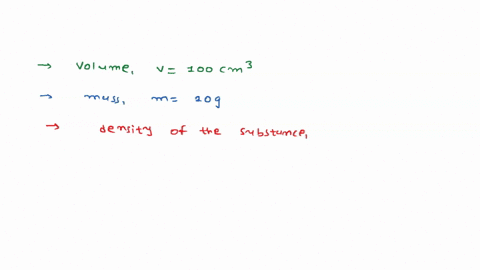 → volume, v= 100 cm³
→ mass, m= 20g
→ density of the substance,